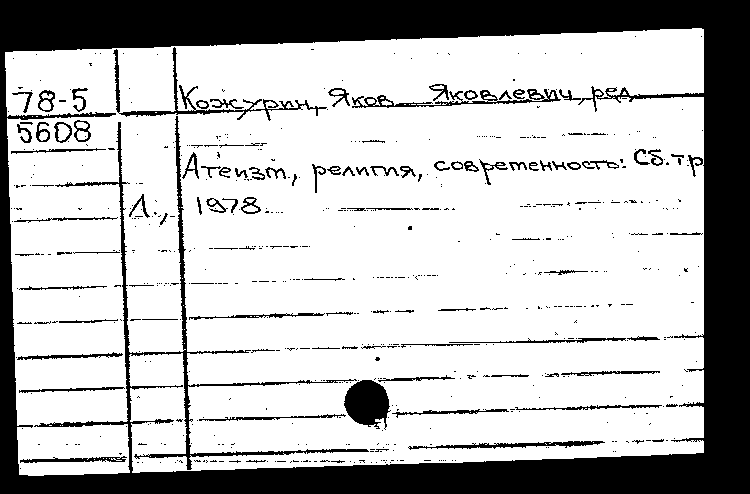 78-5 Кожурин, Яков Яковлевич, ред.
5608
Атеизм, религия, современность: Сб. тр
Л., 1978.